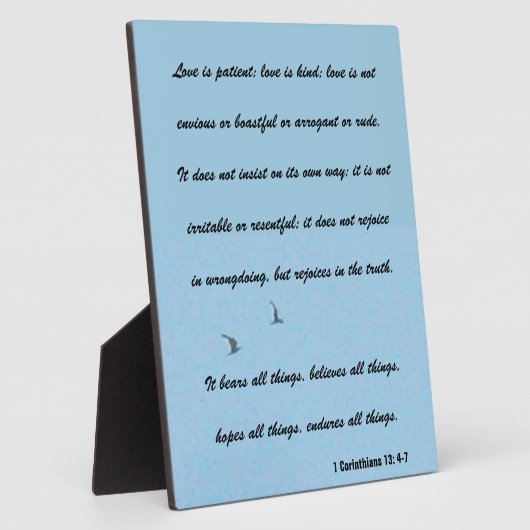 Love is patient; love is kind; love is not
envious or boastful or arrogant or rude.
It does not insist on its own way; it is not
irritable or resentful; it does not rejoice
in wrongdoing, but rejoices in the truth.
It bears all things, believes all things,
hopes all things, endures all things.
1 Corinthians 13: 4-7